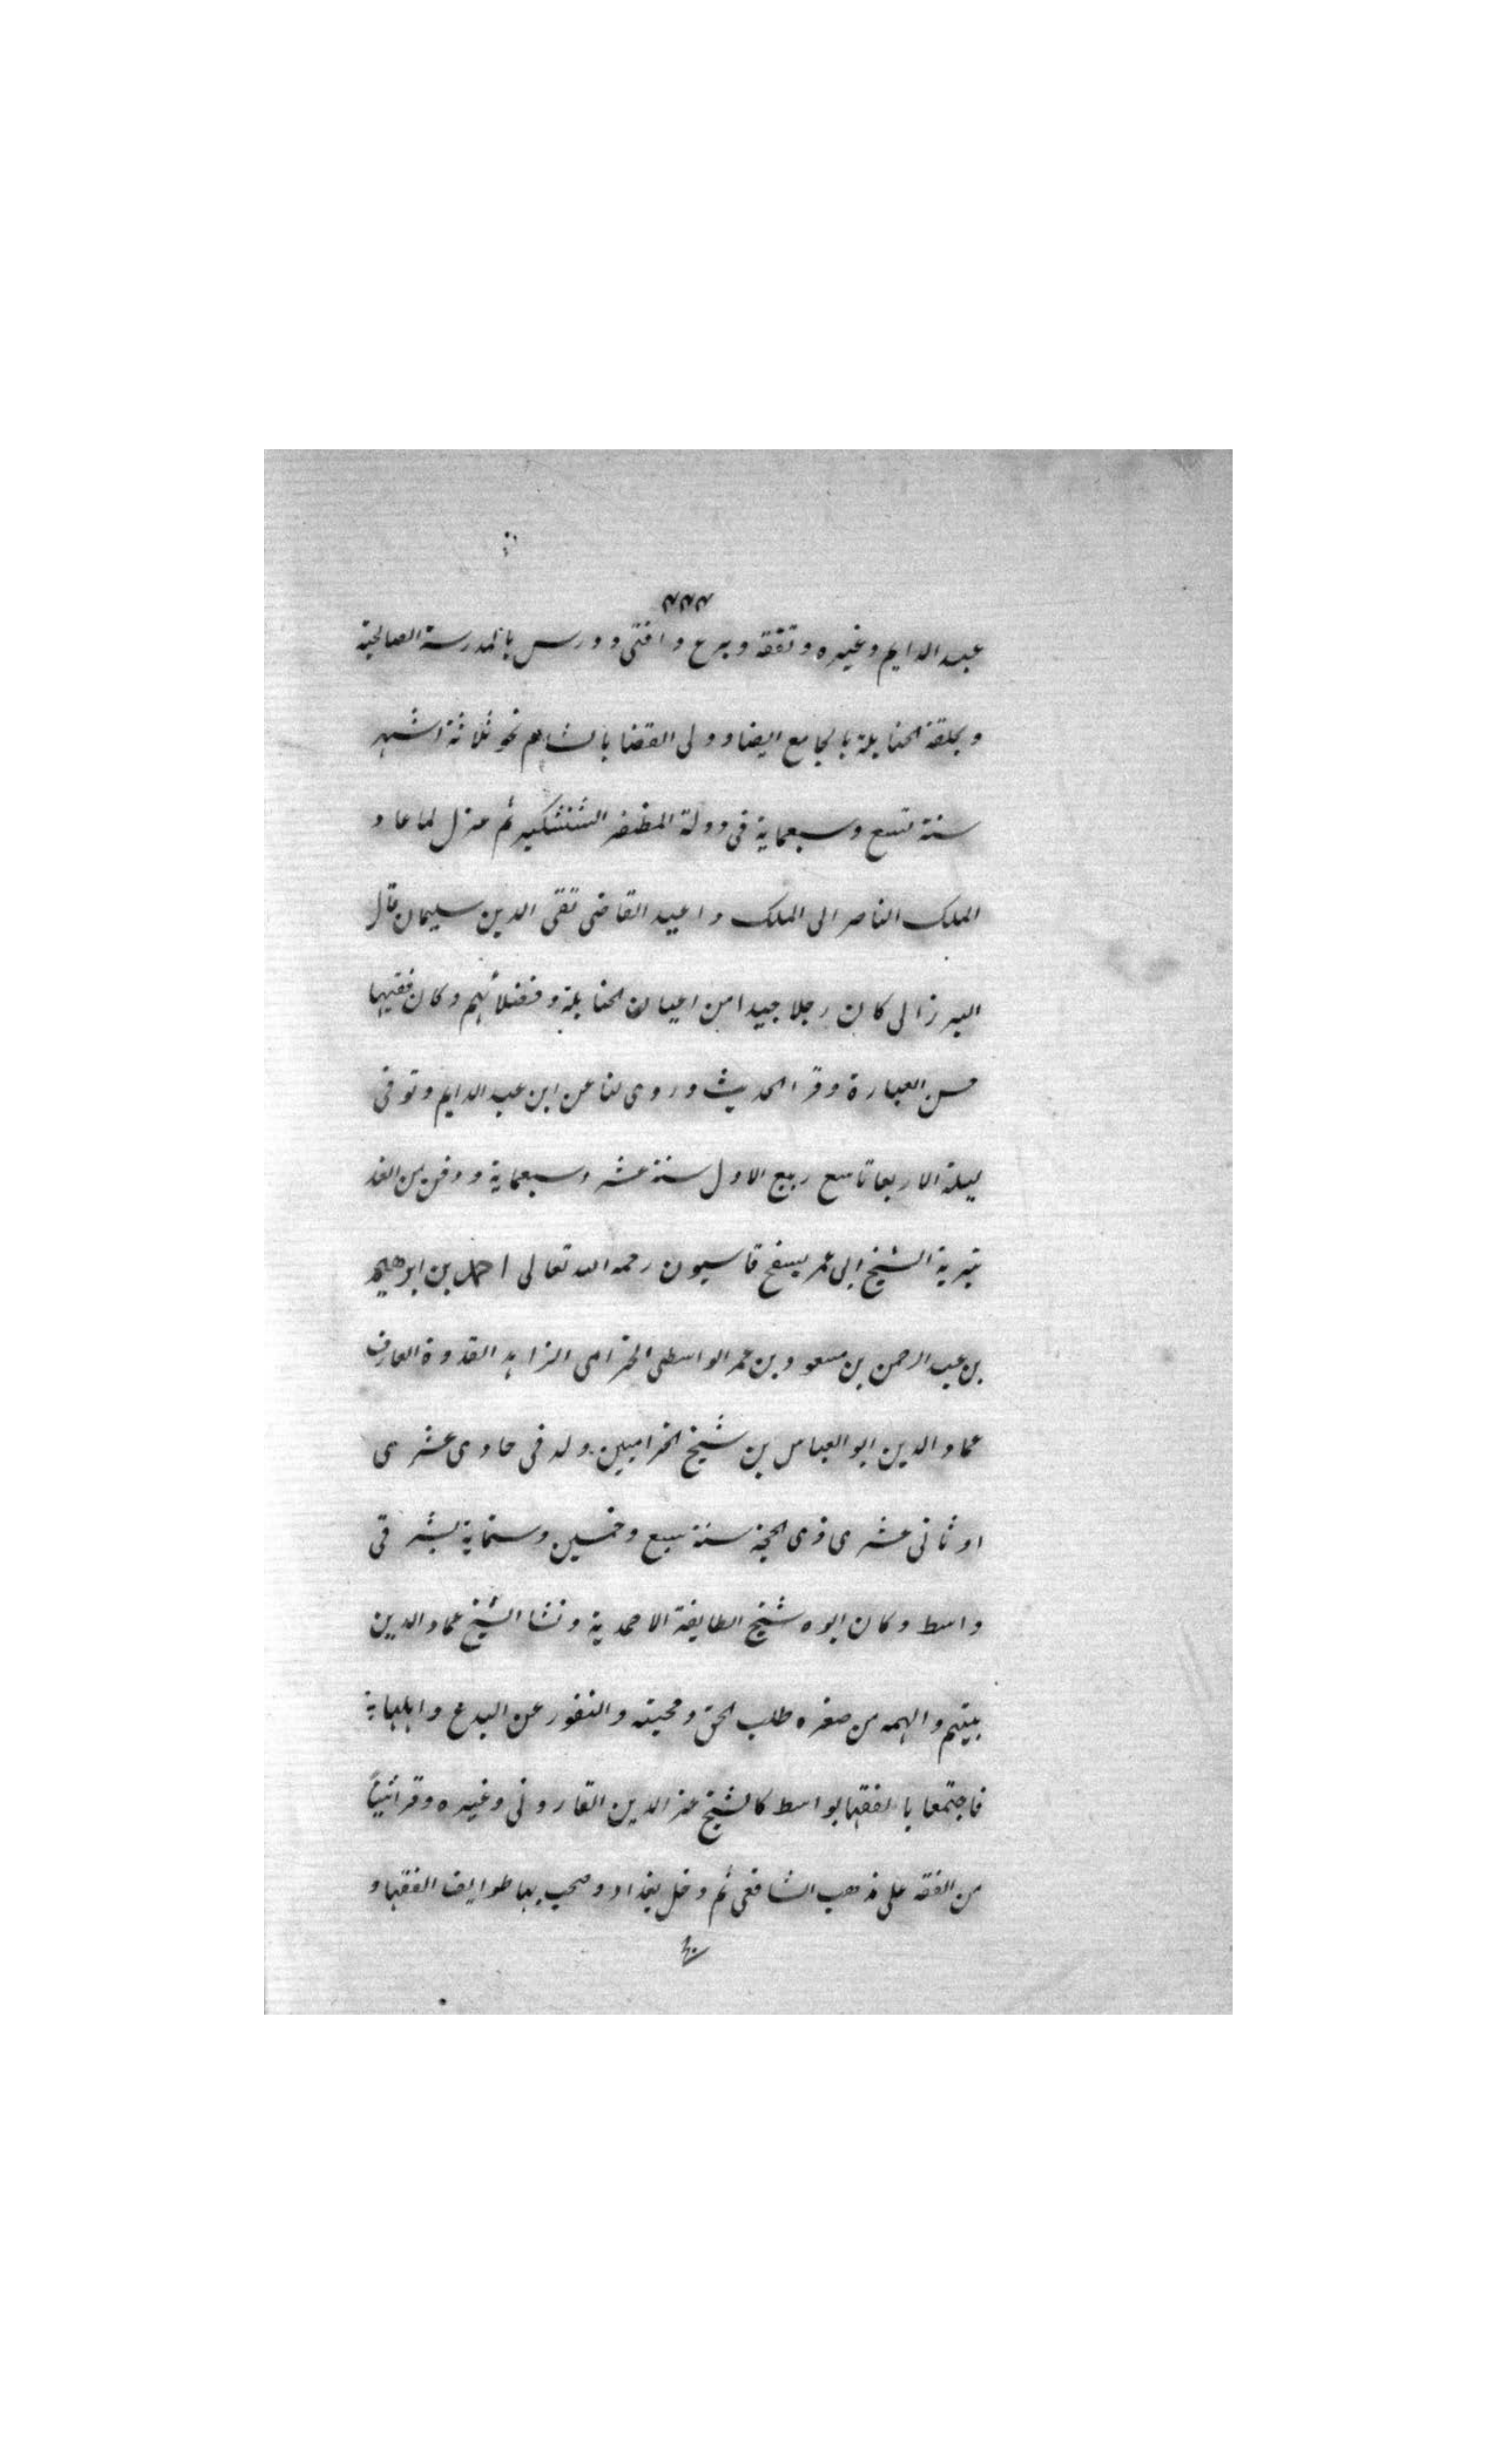 ٧٧٧
عبد الدايم وغيره وتفقه وبرع وافتى ودرس بالمدرسة الصالحية
وبحلقة الحنابلة بالجامع ايضا وولى القضا بالشام نحو ثلاثة اشهر
سنة تسع وسبعماية فى دولة المظفر الششنكير ثم عزل لما عاد
الملك الناصر الى الملك واعيد القاضى تقى الدين سليمان قال
البرزالى كان رجلا جيدا من اعيان الحنابلة وفضلائهم وكان فقيها
حسن العبارة وقرا الحديث وروى لنا عن ابن عبد الدايم وتوفى
ليلة الاربعا تاسع ربيع الاول سنة عشر وسبعماية ودفن من الغد
بتربة الشيخ ابى عمر بسفح قاسيون رحمه الله تعالى احمد بن ابرهيم
بن عبد الرحمن بن مسعود بن عمر الواسطى الحزامى الزاهد القدوة العارف
عماد الدين ابو العباس بن شيخ الحزاميين ولد فى حادى عشرى
او ثانى عشرى ذى الحجة سنة سبع وخمسين وستماية بشرقى
واسط وكان ابوه شيخ الطايفة الاحمدية ونشا الشيخ عماد الدين
بينهم والهمه من صغره طلب الحق ومحبته والنفور عن البدع واهلها
فاجتمعا بالفقها بواسط كالشيخ عز الدين الفاروثى وغيره وقرا شيئاً
من الفقه على مذهب الشافعى ثم دخل بغداد وصحب بها طوايف الفقها و